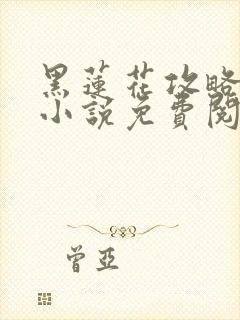 黑蓮花攻略
小說免費閱
曾亞